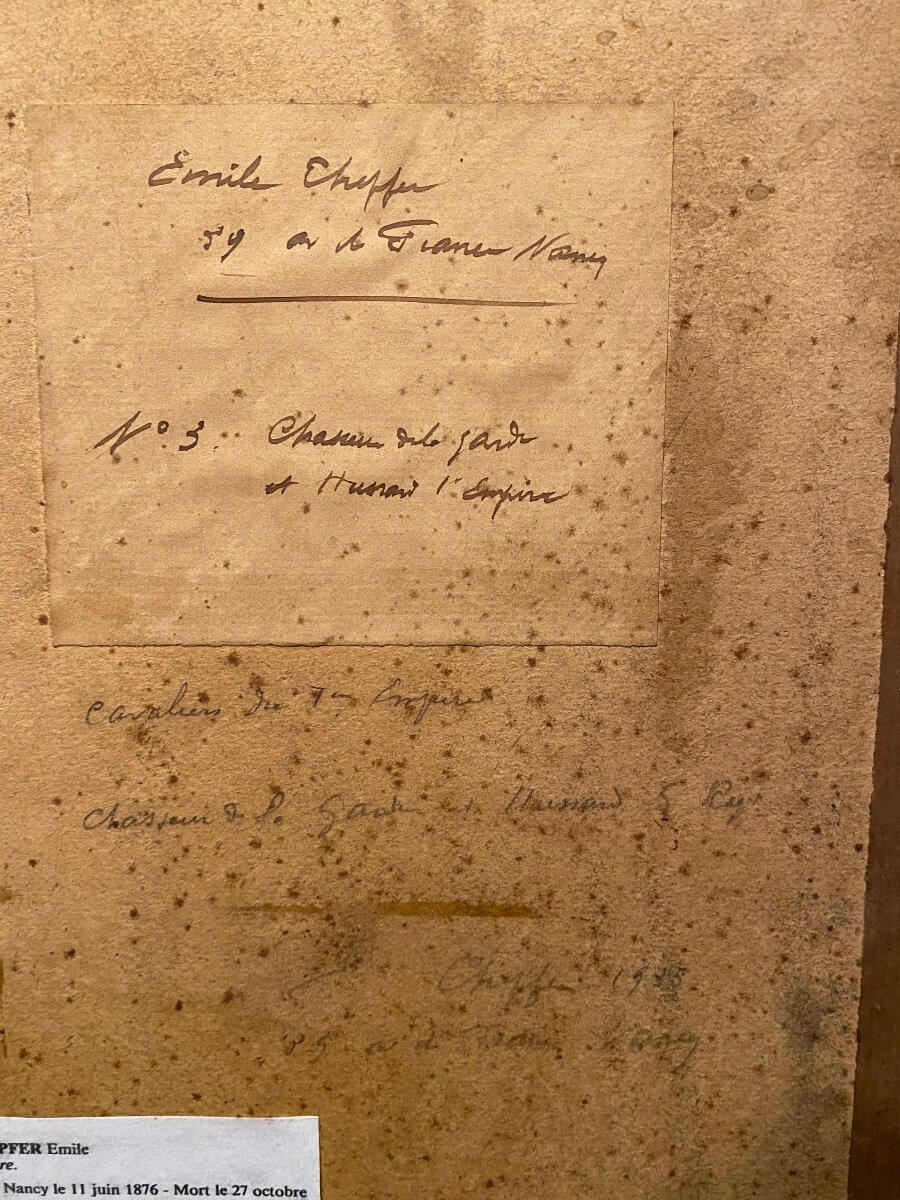 Emile Chepfer
59 av de France Nancy
N° 3. Chasseur de la garde
et Hussard 1er Empire
Cavaliers du 1er Empire
Chasseur de la Garde et Hussard 5 Reg
Chepfer 1935
av de France Nancy
PFER Emile
re.
Nancy le 11 juin 1876 - Mort le 27 octobre